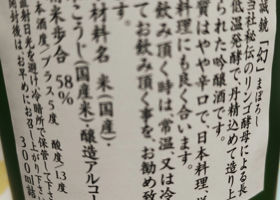 誠鏡 幻 まぼろし
当社秘伝のリンゴ酵母による長
低温発酵で、丹精込めて造り上
られた吟醸酒です。
質はやや辛口で、日本料理・
料理にも良く合います。
てお飲み頂く事は、常温又は冷
お飲み頂く事を、お勧め致
材料名 米(国産)・
こうじ(国産米)・醸造アルコー
米歩合 58%
本酒度/プラス5度 酸度/1.3度
直射日光を避け冷暗所で保管して下さ
開封後はお早めにお召し上がり下さい
300ml詰